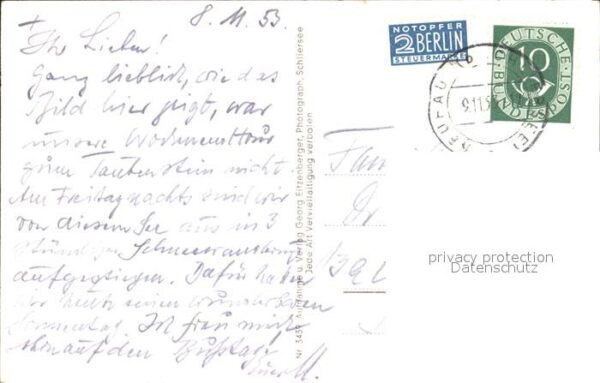 8. 11. 53.
Ihr Lieben!
Ganz lieblich, wie das
Bild hier zeigt, war
unsere Wochenendtour
zum Taubenstein nicht.
Am Freitagnachts sind wir
von diesem See aus in 3
stündiger
aufgestiegen. Dafür haben
wir heute einen wunderbaren
Sonntag. Ich freu mich
schon auf den Bußtag.
Euer M.
Nr. 345 Aufnahme u. Verlag Georg Eitzenberger, Photograph, Schliersee
Jede Art Vervielfältigung verboten
NOTOPFER
2 BERLIN
STEUERMARKE
DEUTSCHE BUNDESPOST
10
NEUHAU
9.11.53
SEE)
Fam
Dr
(392
privacy protection
Datenschutz